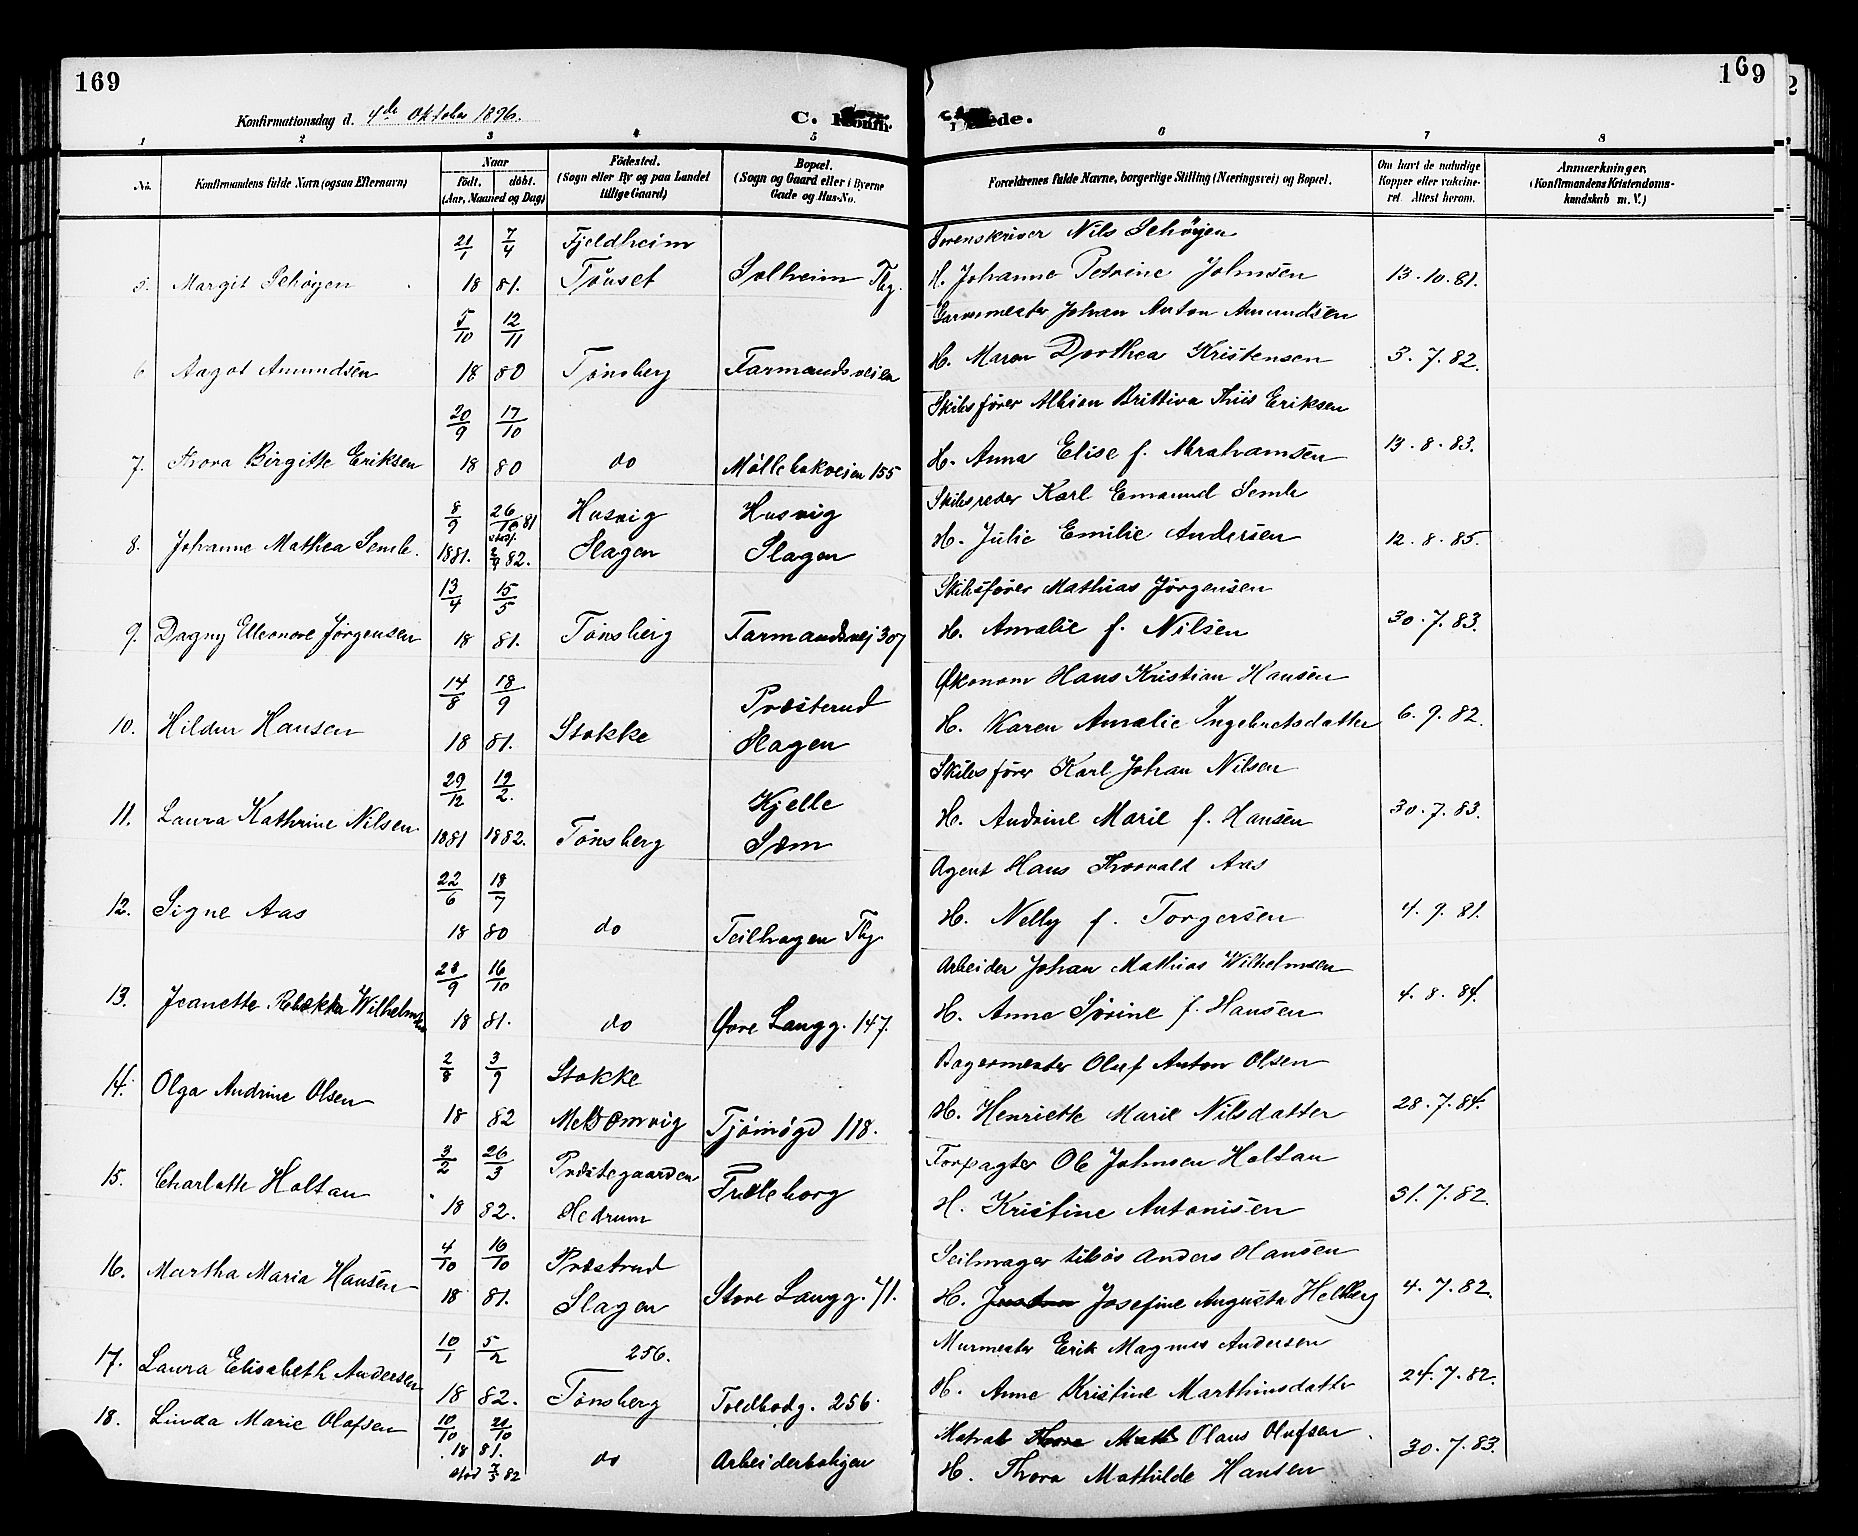 169
169
Konfirmationsdag d. 4de Oktober 1896.
C. Konfir
ede.
1 2 3 4 5 6 7 8
No.
Konfirmandens fulde Navn (ogsaa Efternavn)
Naar
født. døbt.
(Aar, Maaned og Dag)
Födested.
(Sogn eller By og paa Landet tillige Gaard)
Bopæl.
(Sogn og Gaard eller i Byerne Gade og Hus-No.
Forældrenes fulde Navne, borgerlige Stilling (Næringsvei) og Bopæl.
Om havt de naturlige Kopper eller vaccineret. Attest herom.
Anmærkninger.
(Konfirmandens Kristendomskundskab m. V.)
21/1 7/4 Fjeldheim Sorenskriver Nils Schøyen
5. Margit Schøyen 18 81. Tønset Solheim Tbg. H. Johanne Petrine Johnsen 13.10.81.
5/10 12/11 Garvemester Johan Anton Amundsen
6 Aagot Amundsen 18 80 Tønsberg Farmandsveien H. Maren Dorthea Kristensen 3.7.82.
20/9 17/10 Skibsfører Albion Brittiva Thiis Eriksen
7. Thora Birgitte Eriksen 18 80 do Møllebakveien 155 H. Anna Elise f. Abrahamsen 13.8.83.
8/9 26/10 81 Husvig Husvig Skibsreder Karl Emanuel Semb
8. Johanne Mathea Semb. 1881. 82. Slagen Slagen H. Julie Emilie Andersen 12.8.85.
13/4 15/5 Skibsfører Mathias Jørgensen
9. Dagny Elleonore Jørgensen 18 81. Tønsberg Farmandsvej 307 H. Amalie f. Nilsen 30.7.83.
14/8 18/9 Præsterud Økonom Hans Kristian Hansen
10. Hildur Hansen 18 81. Stokke Slagen H. Karen Amalie Ingebretsdatter 6.9.82.
29/12 19/2. Kjelle Skibsfører Karl Johan Nilsen
11. Laura Kathrine Nilsen 1881 1882. Tønsberg Sem H. Andrine Marie f. Hansen 30.7.83.
22/6 18/7 Agent Hans Thorvald Aas
12. Signe Aas 18 80 do Teilhagen Tbg. H. Nelly f. Torgersen 4.9.81.
28/9 16/10 Arbeider Johan Mathias Wilhelmsen
13. Jeanette Rebekka Wilhelmsen 18 81. do Øvre Langg. 147. H. Anne Sørine f. Hansen 4.8.84.
2/8 3/9 Stokke Bagermester Oluf Anton Olsen
14. Olga Andrine Olsen 18 82 Melsomvig Tjømøgd 118. H. Henriette Marie Nilsdatter 28.7.84.
3/2 26/3 Præstegaarden Forpagter Ole Johnsen Holtan
15. Charlotte Holtan 18 82. Hedrum Træleborg H. Kristine Antonisen 31.7.82.
4/10 16/10 Præstrud Seilmager tilsøs Anders Hansen
16. Martha Maria Hansen 18 81. Slagen Store Langg. 71. H. Josefine Augusta Helberg 4.7.82.
10/1 5/2 256. Murmester Erik Magnus Andersen
17. Laura Elisabeth Andersen 18 82. Tønsberg Toldbodg. 256. H. Anne Kristine Marthinsdatter 24.7.82.
18. Linda Marie Olafsen 10/10 21/10 Matros Olaus Olufsen
18 81. do Arbeiderboligen 30.7.83.
82 H. Thora Mathilde Hansen